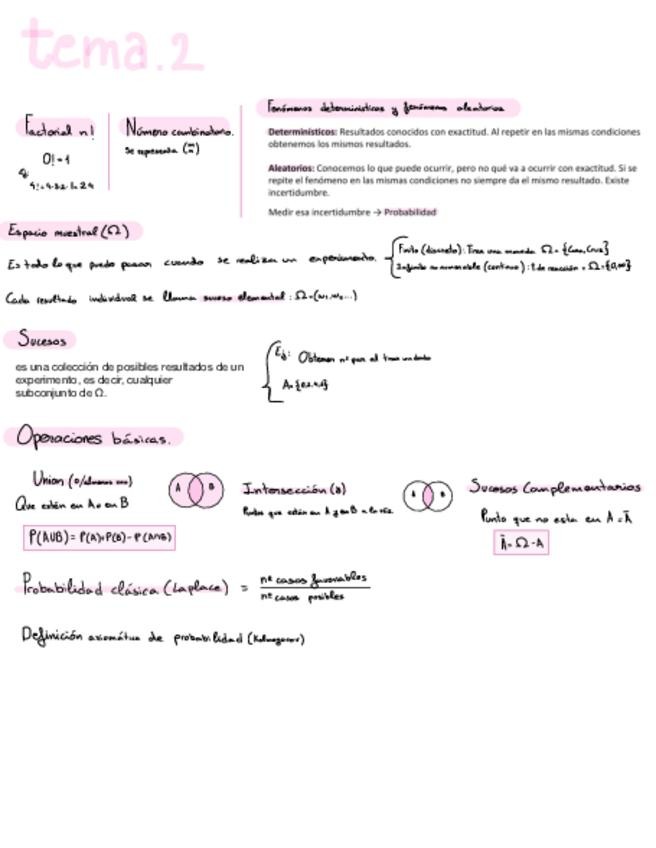 tema.2
Factorial n!
0! = 1
4! = 4·3·2·1 = 24
Número combinatorio.
Se representa (m n)
Fenómenos determinísticos y fenómenos aleatorios
Determinísticos: Resultados conocidos con exactitud. Al repetir en las mismas condiciones
obtenemos los mismos resultados.
Aleatorios: Conocemos lo que puede ocurrir, pero no qué va a ocurrir con exactitud. Si se
repite el fenómeno en las mismas condiciones no siempre da el mismo resultado. Existe
incertidumbre.
Medir esa incertidumbre → Probabilidad
Espacio muestral (Ω)
Es todo lo que puede pasar cuando se realiza un experimento.
Finito (discreto): Tirar una moneda Ω = {Cara, Cruz}
Infinito no numerable (continuo): t de reacción = Ω = {0,∞}
Cada resultado individual se llama suceso elemental: Ω = (w₁, w₂, ...)
Sucesos
es una colección de posibles resultados de un
experimento, es decir, cualquier
subconjunto de Ω.
Ej: Obtener nº par al tirar un dado
Operaciones básicas.
Union (o/
Que estén en A o en B
P(A∪B) = P(A)+P(B) - P(A∩B)
A B
Intersección (y)
Puntos que están en A y en B a la vez.
A B
Sucesos Complementarios
Punto que no esta en A = Ā
Ā = Ω - A
Probabilidad clásica (Laplace) = nº casos favorables
nº casos posibles
Definición axiomática de probabilidad (Kolmogorov)